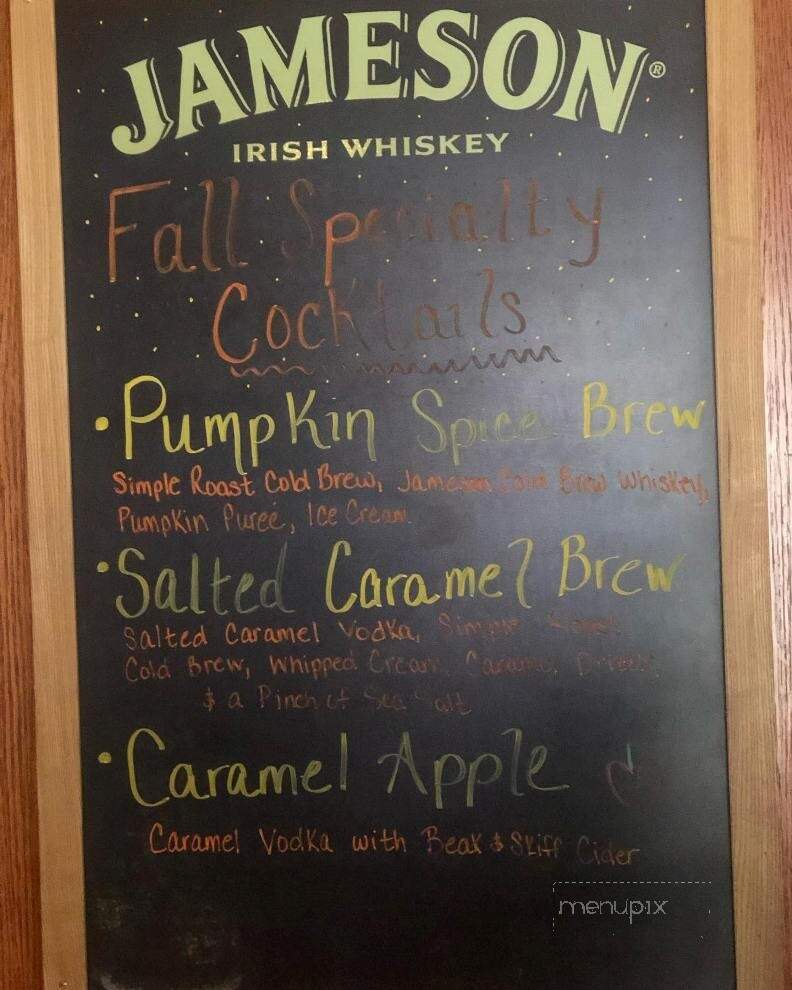 JAMESON®
IRISH WHISKEY
Fall Specialty
Cocktails
• Pumpkin Spice Brew
Simple Roast Cold Brew, Jameson Cold Brew Whiskey,
Pumpkin Pureé, Ice Cream
• Salted Caramel Brew
Salted Caramel Vodka, Simple Roast
Cold Brew, Whipped Cream, Caramel Drizzle,
& a Pinch of Sea Salt
• Caramel Apple
Caramel Vodka with Beak & Skiff Cider
menupix